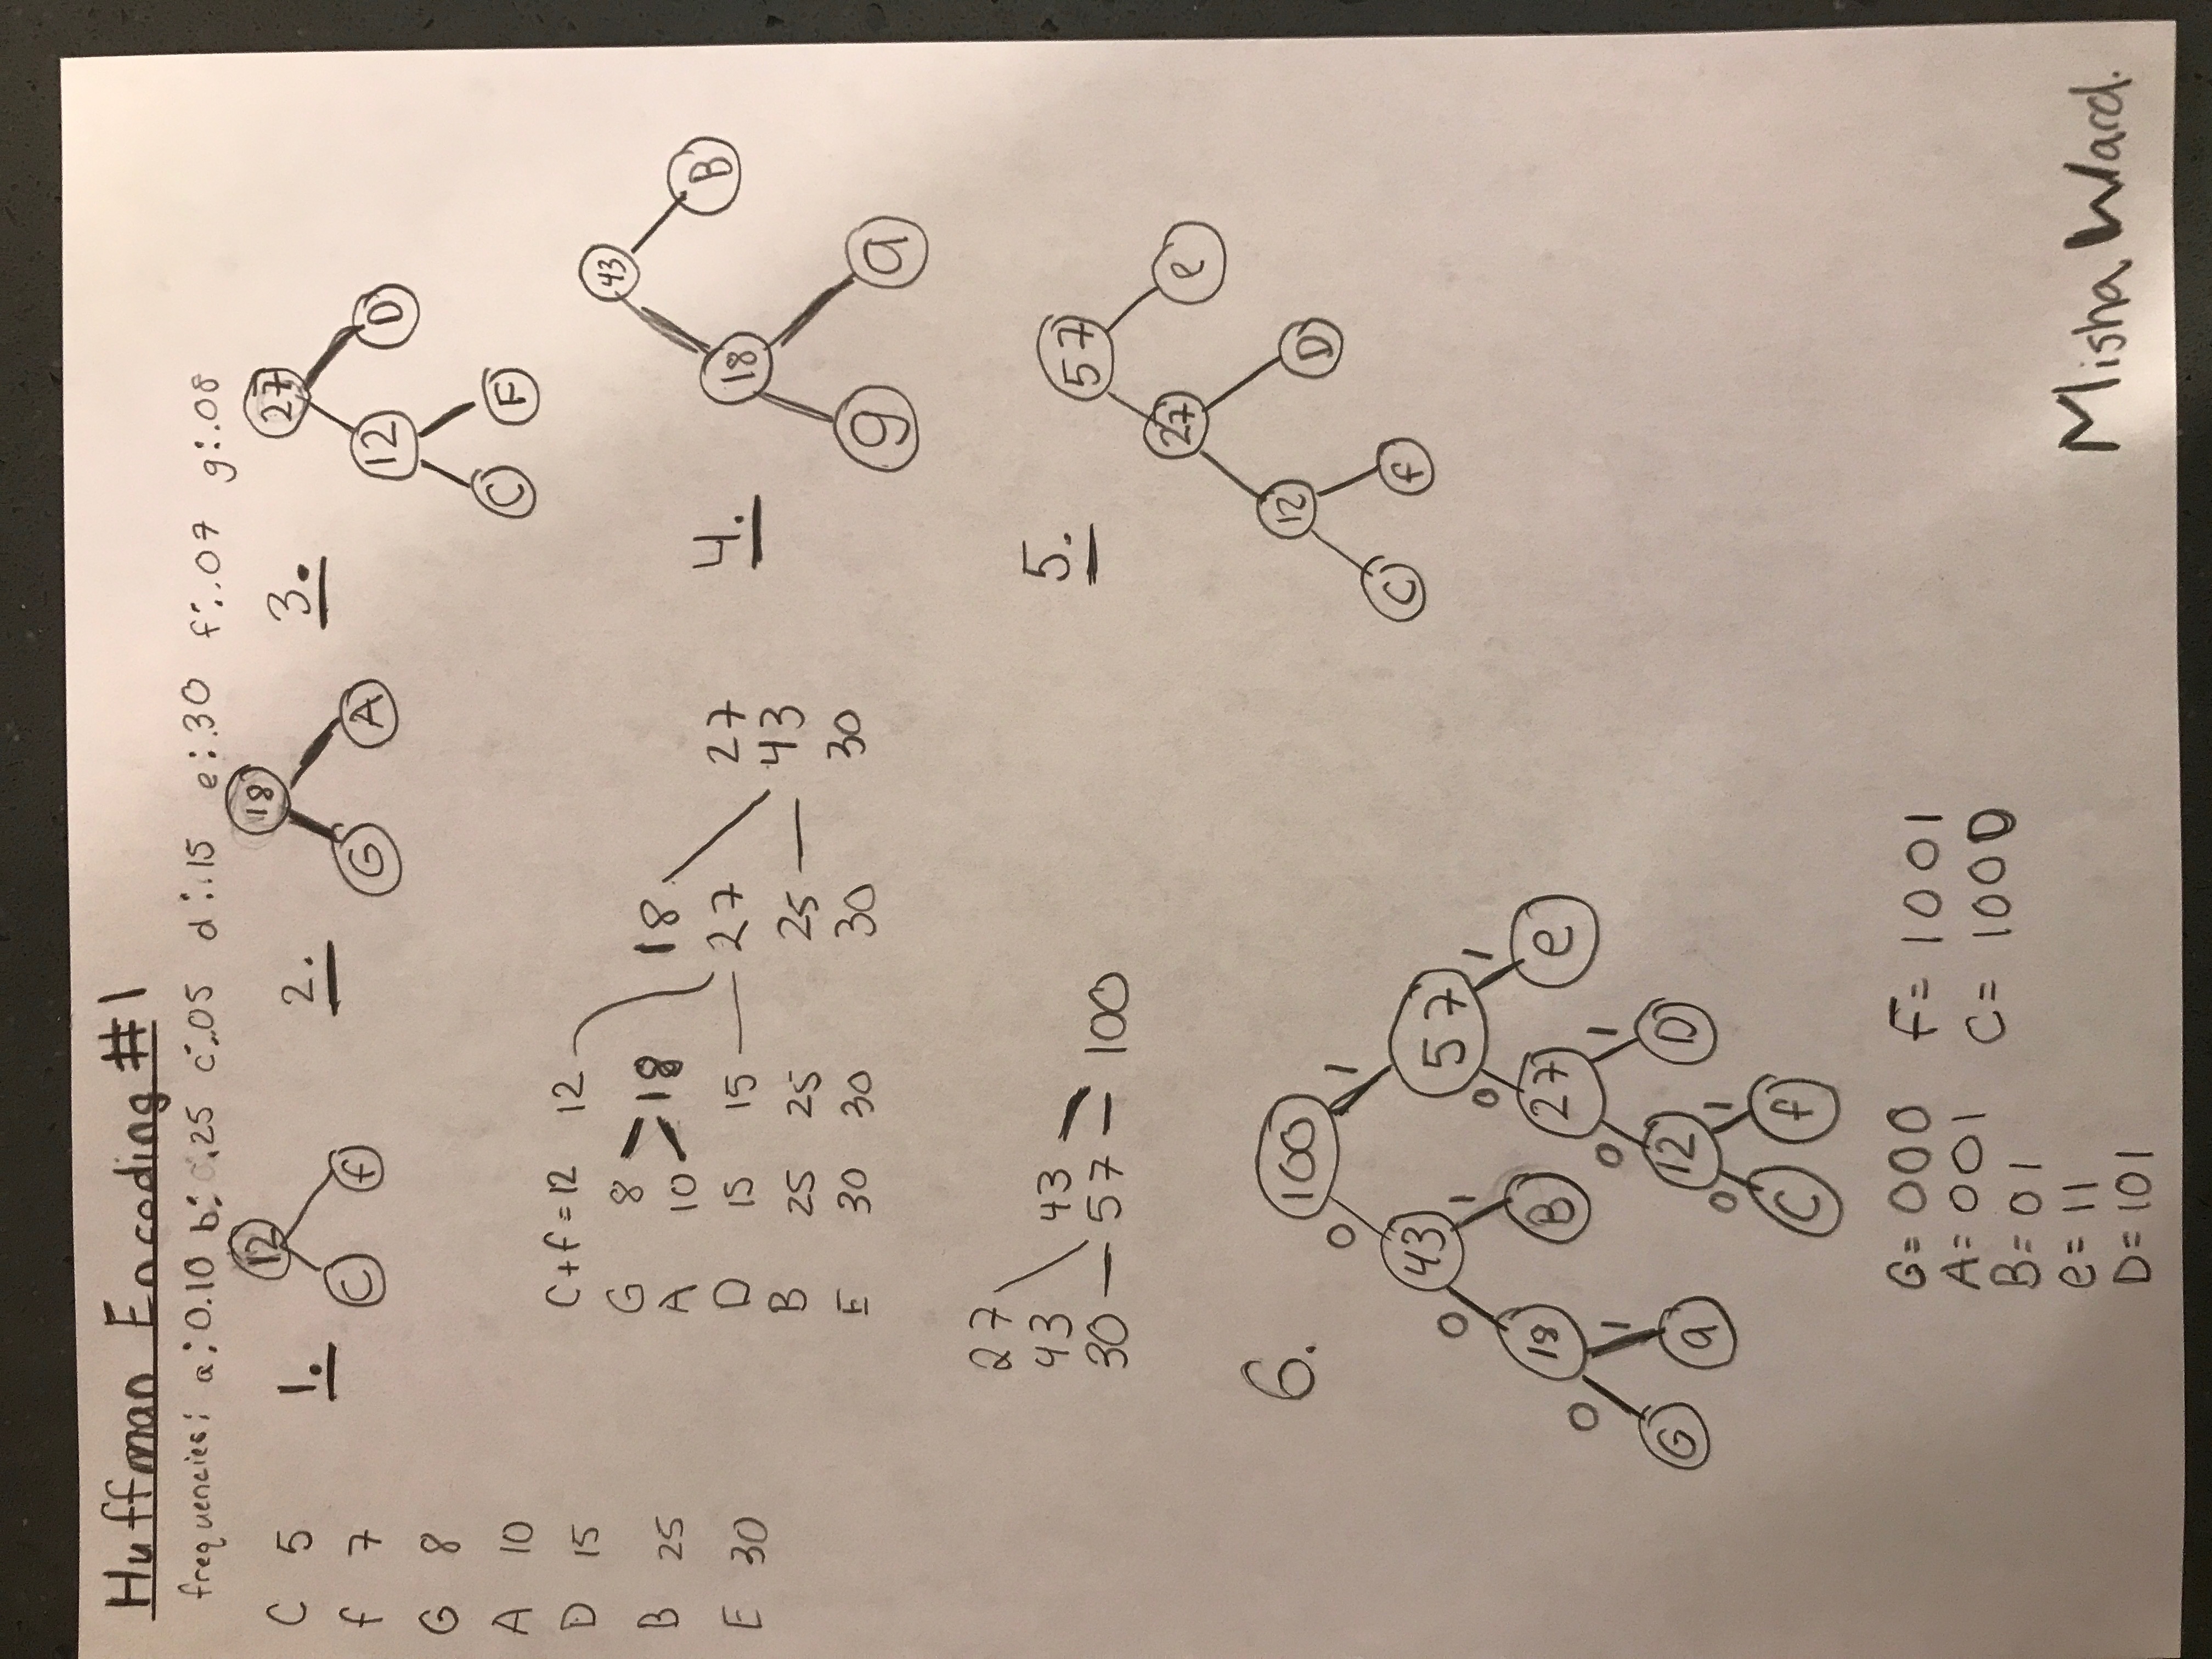 Huffman Encoding #1
frequencies: a: 0.10 b: .25 c: .05 d: .15 e: .30 f: .07 g: .08
C 5
f 7
G 8
A 10
D 15
B 25
E 30
1.
12
C f
2.
18
G A
3.
27
12 D
C F
C+f=12 12
G 8 18 18
A 10
D 15 15 27 27
B 25 25 25 43
E 30 30 30 30
4.
43
18 B
g a
27
43 43
30 57 100
5.
57
27 e
12 D
C f
6.
100
0 1
43 57
0 1 0 1
18 B 27 e
0 1 0 1
G a 12 D
0 1
C f
G= 000 F= 1001
A= 001 C= 1000
B= 01
e= 11
D= 101
Misha Ward.